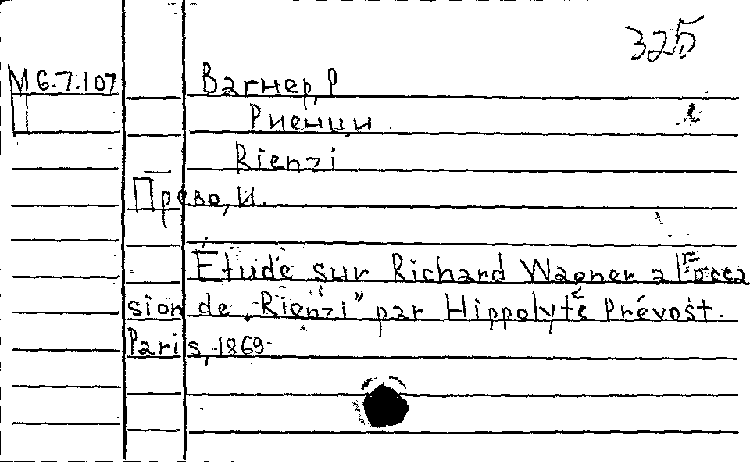 325
М 6.7.107 Вагнер, Р
П Риенци
Rienzi
Прево, И.
Étude sur Richard Wagner a l'occa
sion de „Rienzi” par Hippolyte Prévost.
Paris, 1869